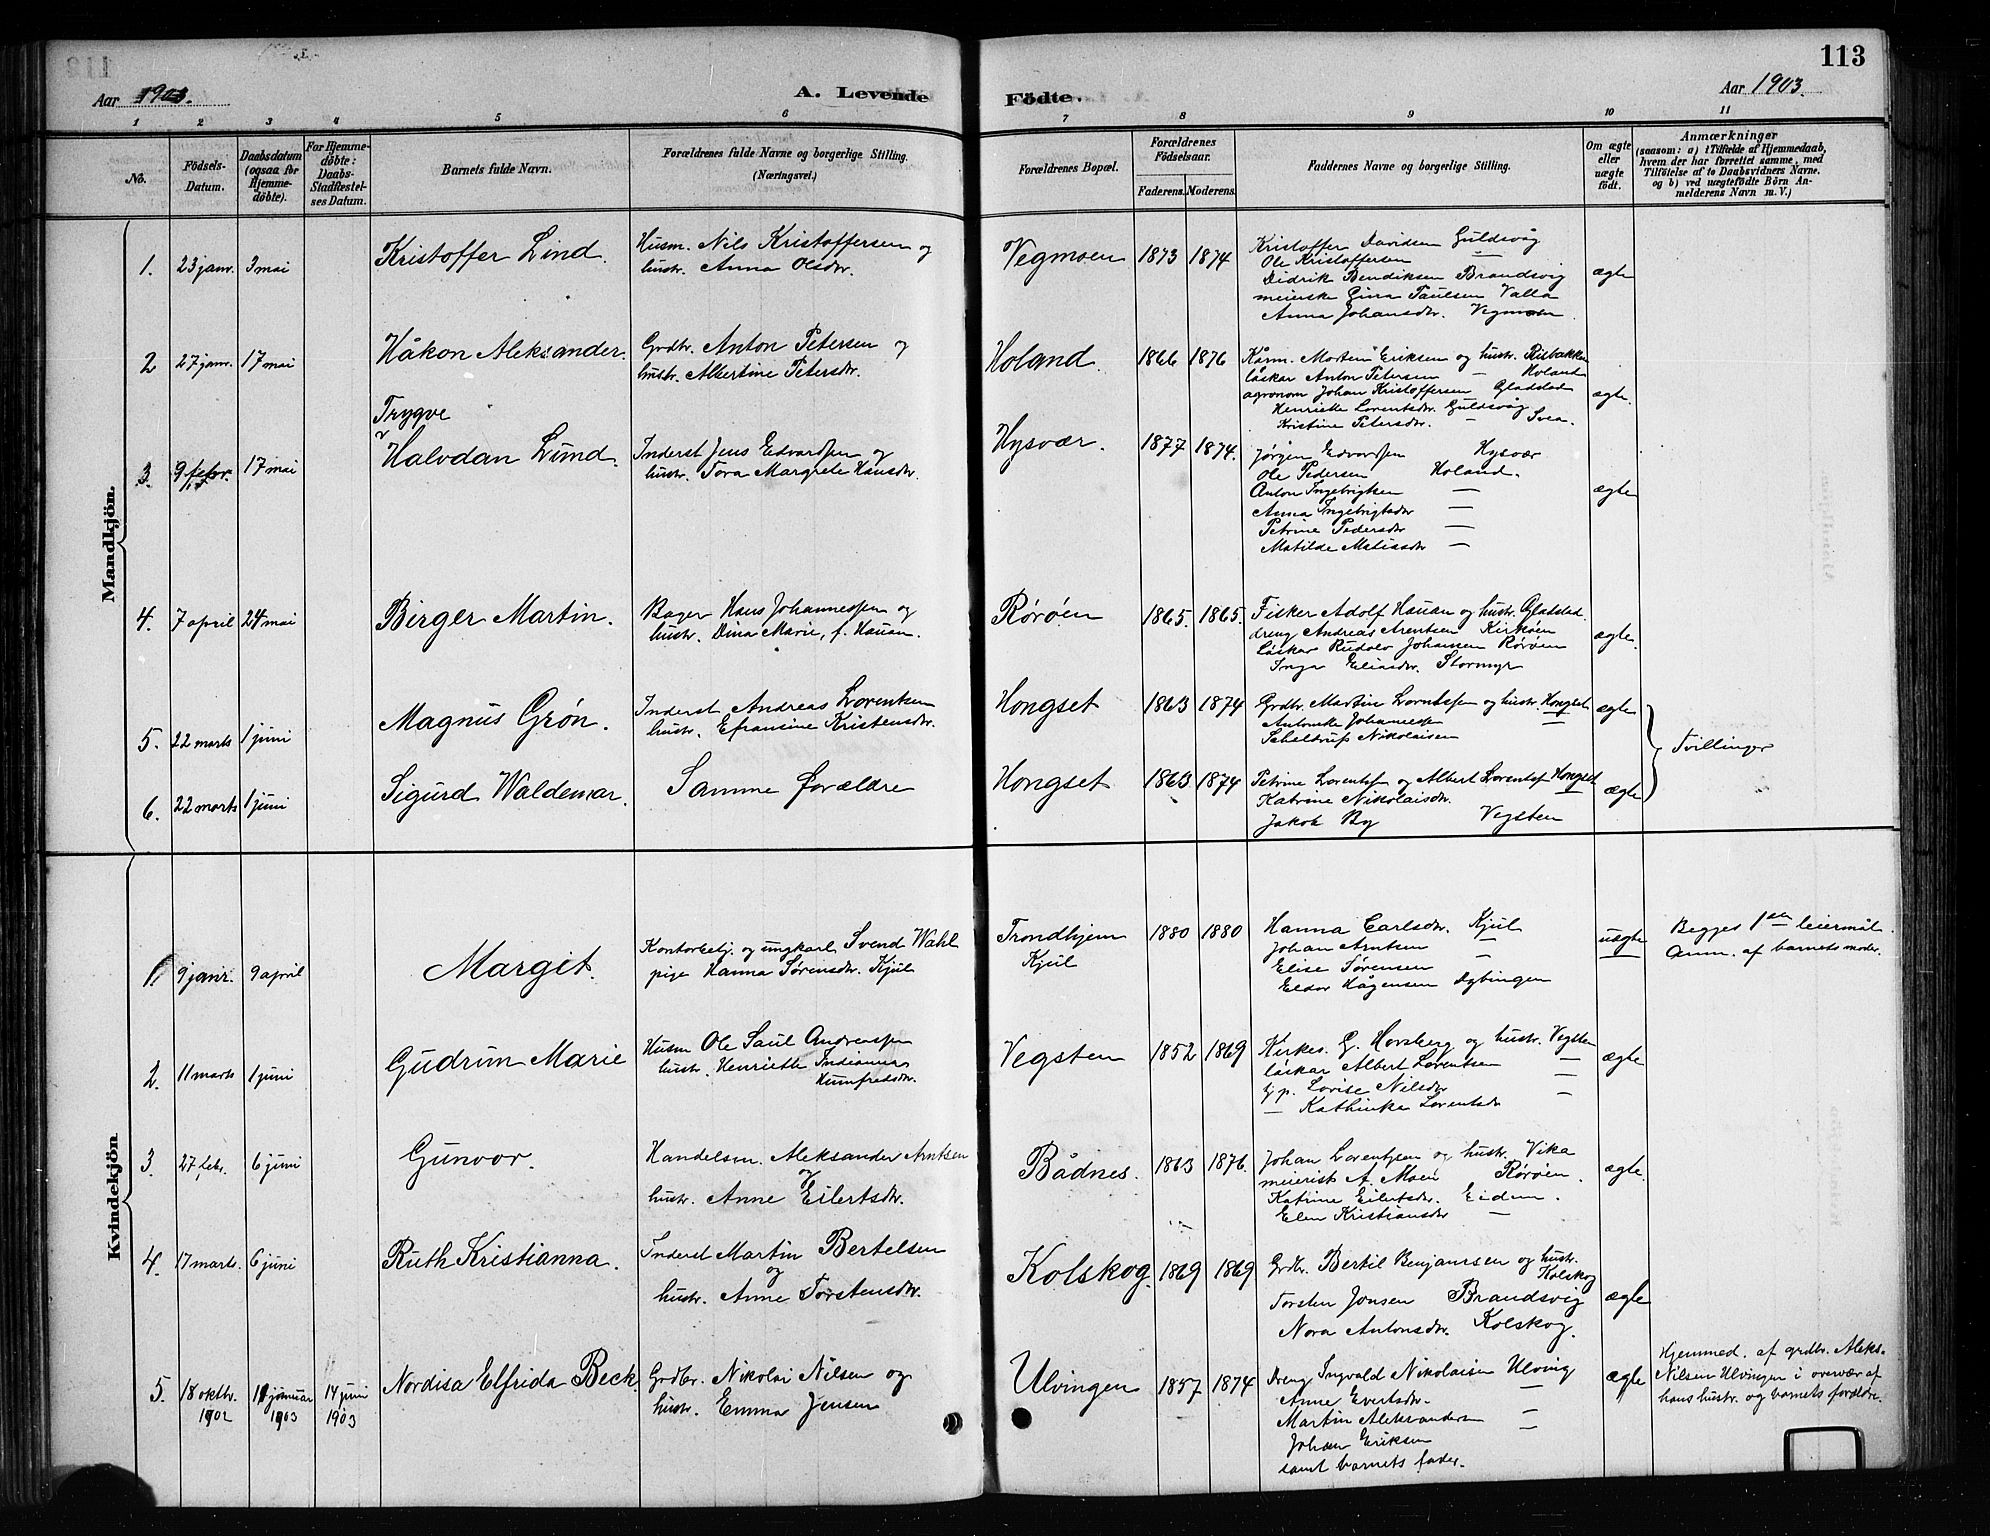 113
Aar 1903.
A. Levende Födte.
Aar 1903.
1 2 3 4 5 6 7 8 9 10 11
No.
Födsels-Datum.
Daabsdatum (ogsaa for Hjemme-döbte).
For Hjemme-döbte: Daabs-Stadfæstel-ses Datum.
Barnets fulde Navn.
Forældrenes fulde Navne og borgerlige Stilling. (Næringsvei.)
Forældrenes Bopæl.
Forældrenes Födselsaar.
Faderens. Moderens.
Faddernes Navne og borgerlige Stilling.
Om ægte eller uægte födt.
Anmærkninger
(saasom: a) i Tilfælde af Hjemmedaab, hvem der har forrettet samme, med Tilföielse af to Daabsvidners Navne. og b) ved uægtefödte Börn An-melderens Navn m. V.)
Mandkjön.
1. 23 janr. 3 mai Kristoffer Lind.
Husm. Nils Kristoffersen og
hustr. Anna Olsdtr.
Vegmoen 1873 1874
Kristoffer Davidsen Guldsvåg
Ole Kristoffersen —
Didrik Bendiksen Brandsvig
meierske Gina Paulsen Valla
Anna Johansdtr. Vegmoen.
ægte
2 27 janr. 17 mai Håkon Aleksander.
Grdbr. Anton Petersen og
hustr. Albertine Petersdtr.
Holand. 1866 1876
Kårm. Morten Eriksen og hustr. Risbakken
låskar Anton Petersen — Holand
agronom Johan Kristoffersen Gladstad
Henriette Lorentsdtr. Guldsvåg
Kristine Petersdtr. — Svea.
ægte.
3. 9 febr. 17 mai
Trygve
Halvdan Lund.
Inderst Jens Edvardsen og
hustr. Tora Margrete Hansdtr.
Hysvær. 1877 1874.
Jørgen Edvardsen Hysvær
Ole Pedersen Holand.
Anton Ingebrigtsen —
Anna Ingebrigtsdtr —
Petrine Pedersdtr —
Matilde Matisdtr —
ægte
4. 7 april 24 mai Birger Martin.
Bager Hans Johannessen og
hustr. Dina Marie, f. Hauan.
Rørøen 1865. 1865.
Fisker Adolf Hauan og hustr. Gladstad
dreng Andreas Arentsen Kirkøen
Låskar Rudolv Johansen Rørøen
Inga Eliasdtr. Stormyr
ægte.
5. 22 marts 1 juni Magnus Grøn.
Inderst Andreas Lorentsen
hustr. Efransine Kristensdtr.
Hongset 1863 1874
Grdbr. Martin Lorntsen og hustr. Hongset
Antonike Johannessen —
Scheldrup Nikolaisen
ægte
Tvillinger
6. 22 marts 1 juni Sigurd Waldemar.
Samme forældre
Hongset 1863 1874
Petrine Lorents og Albert Lorents Hongset
Katrine Nikolaisdtr.
Jakob By Vegsten
ægte
Kvindekjön
1. 9 janr. 9 april Margit.
Kontorbetj. og ungkarl Svend Wahl
pige Hanna Sørensdtr. Kjul
Trondhjem
Kjul
1880 1880
Hanna Carlsdtr. Kjul
Johan Arntsen —
Elise Sørensen —
Eldor Hågensen Dybingen
uægte
Begges 1ste leiermål.
Anm. af barnets moder.
2. 11 marts 1 juni Gudrun Marie
Husm Ole Saul Andreassen
hustr. Henriette Indianna
Humfredsdtr.
Vegsten 1852 1869
Kirkes. G. Horsberg og hustr. Vegsten
låskar Albert Lorentsen —
tj p. Lovise Nilsdtr —
— Kathinka Lorentsdtr —
ægte
3. 27 febr. 6 juni Gunvor.
Handelsm. Aleksander Arntsen
og
hustr. Anne Eilertsdtr.
Bådnes. 1863 1876.
Johan Lorentsen og hustr. Vika
meierist A. Moen Rørøen.
Katrine Eilertsdtr. Eidem.
Elen Kristiansdtr —
ægte.
4. 17 marts. 6 juni Ruth Kristianna.
Inderst Martin Bertelsen
og
hustr. Anne Torstensdtr.
Kolskog. 1869 1869
Grdbr. Bertil Benjamsen og hustr.
Kolskog
Torsten Jonsen Brandsvig
Nora Antonsdtr. Kolskog.
ægte
5. 18 oktbr. 1902 11 januar 1903 14 juni 1903 Nordisa Elfrida Beck.
Grdbr. Nikolai Nilsen og
hustr. Emma Jensen
Ulvingen 1857 1874
Dreng Ingvald Nikolaisen Ulving
Anne Evertsdtr. —
Martin Aleksandersen —
Johan Eriksen —
samt barnets fader.
ægte
Hjemmed. af grdbr. Aleks.
Nilsen Ulvingen i overvær af
hans hustr. og barnets forældre.